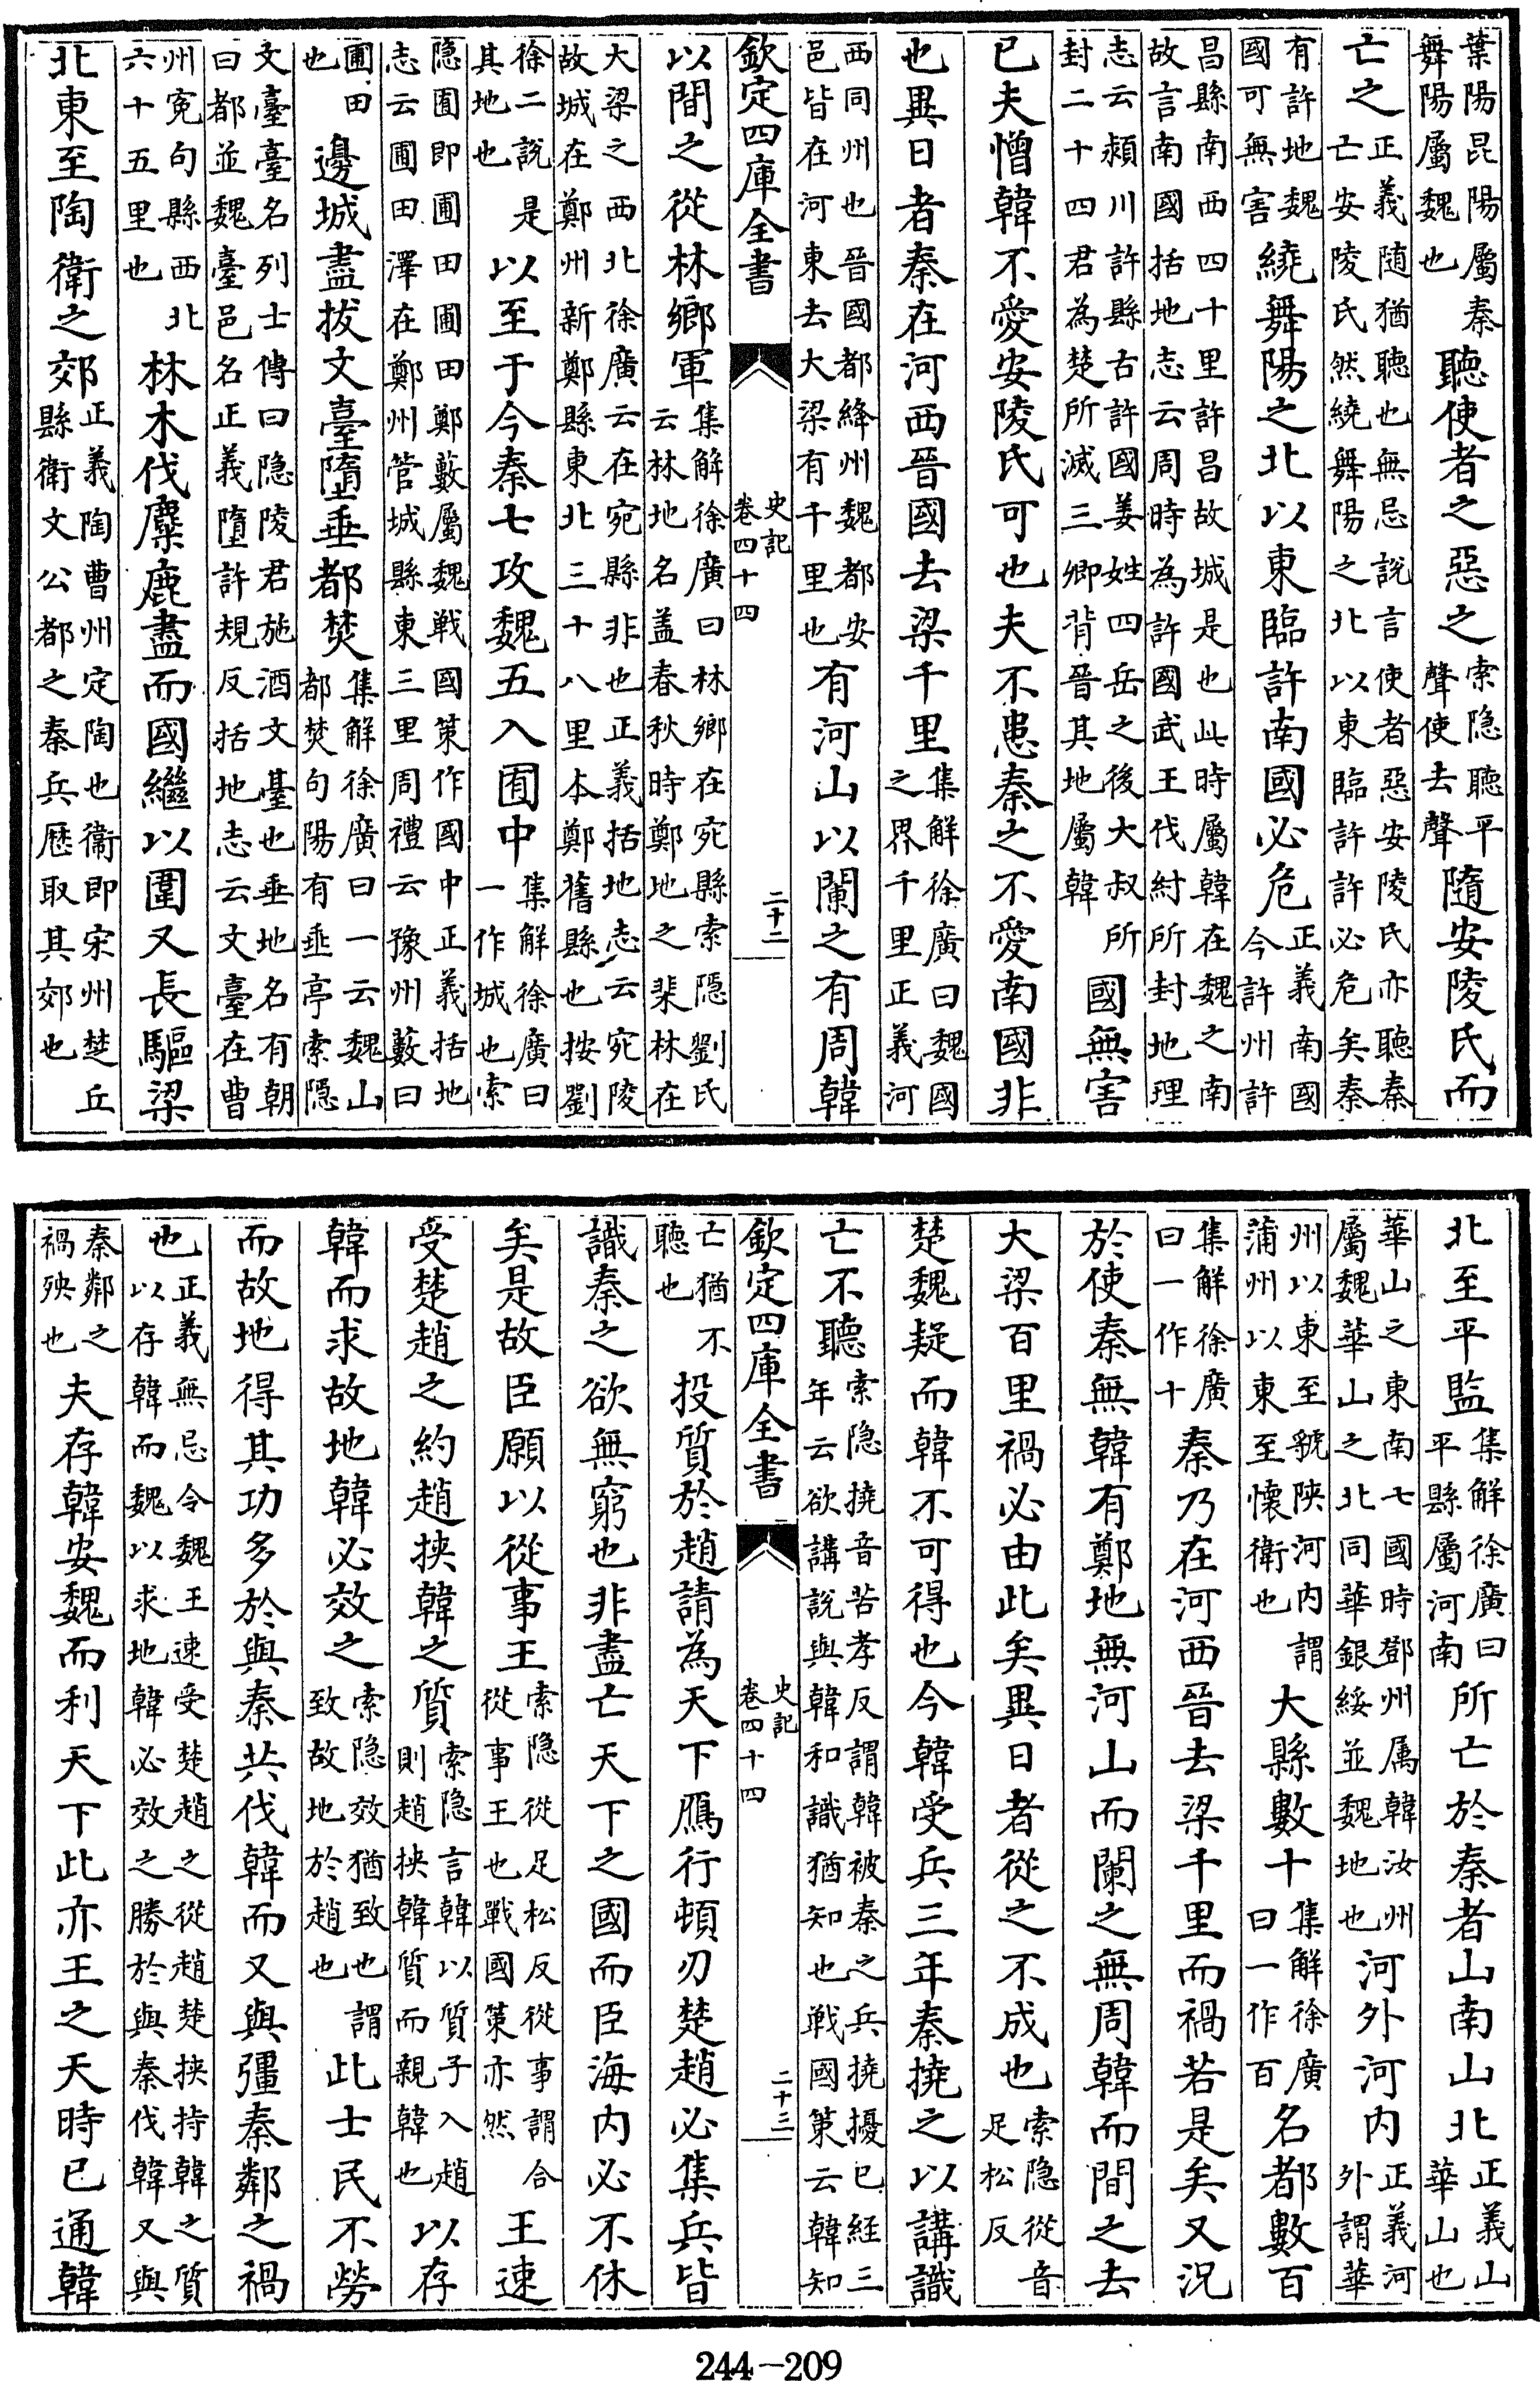 葉陽昆陽屬秦舞陽屬魏也聽使者之惡之索隐聽平聲使去聲隨安陵氏而
亡之正義随猶聽也無忌說言使者惡安陵氏亦聽秦亡安陵氏然繞舞陽之北以東臨許許必危矣秦
有許地魏國可無害繞舞陽之北以東臨許南國必危正義南國今許州許
昌縣南西四十里許昌故城是也此時屬韓在魏之南故言南國括地志云周時為許國武王伐紂所封地理
志云潁川許縣古許國姜姓四岳之後大叔所封二十四君為楚所滅三卿背晉其地屬韓國無害
已夫憎韓不愛安陵氏可也夫不患秦之不愛南國非
也異日者秦在河西晉國去梁千里集解徐廣曰魏國之界千里正義河
西同州也晉國都絳州魏都安邑皆在河東去大梁有千里也有河山以闌之有周韓
欽定四庫全書 史記卷四十四 二十二
以間之從林鄉軍集解徐廣曰林鄉在宛縣索隠劉氏云林地名盖春秋時鄭地之棐林在
大梁之西北徐廣云在宛縣非也正義括地志云宛陵故城在鄭州新鄭縣東北三十八里本鄭舊縣也按劉
徐二說是其地也以至于今秦七攻魏五入囿中集解徐廣曰一作城也索
隐囿即圃田圃田鄭藪屬魏戰國策作國中正義括地志云圃田澤在鄭州管城縣東三里周禮云豫州藪曰
圃田也邊城盡拔文臺墮垂都焚集解徐廣曰一云魏山都焚句陽有垂亭索隠
文臺臺名列士傳曰隐陵君施酒文臺也垂地名有朝曰都並魏臺邑名正義墮許規反括地志云文臺在曹
州寃句縣西北六十五里也林木伐麋鹿盡而國繼以圍又長驅梁
北東至陶衛之郊正義陶曹州定陶也衛即宋州楚丘縣衛文公都之秦兵厯取其郊也
北至平監集解徐廣曰平縣屬河南所亡於秦者山南山北正義山華山也
華山之東南七國時鄧州屬韓汝州屬魏華山之北同華銀綏並魏地也河外河内正義河外謂華
州以東至虢陜河内謂蒲州以東至懐衛也大縣數十集解徐廣曰一作百名都數百
集解徐廣曰一作十秦乃在河西晉去梁千里而禍若是矣又況
於使秦無韓有鄭地無河山而闌之無周韓而間之去
大梁百里禍必由此矣異日者從之不成也索隐從音足松反
楚魏疑而韓不可得也今韓受兵三年秦撓之以講識
亡不聽索隐撓音苦孝反謂韓被秦之兵撓擾已經三年云欲講說與韓和識猶知也戰國策云韓知
欽定四庫全書 史記卷四十四 二十三
亡猶不聽也投質於趙請為天下鴈行頓刃楚趙必集兵皆
識秦之欲無窮也非盡亡天下之國而臣海内必不休
矣是故臣願以從事王索隐從足松反從事謂合從事王也戰國策亦然王速
受楚趙之約趙挾韓之質索隐言韓以質子入趙則趙挾韓質而親韓也以存
韓而求故地韓必效之索隐效猶致也謂致故地於趙也此士民不勞
而故地得其功多於與秦共伐韓而又與彊秦鄰之禍
也正義無忌令魏王速受楚趙之從趙楚挾持韓之質以存韓而魏以求地韓必效之勝於與秦伐韓又與
秦鄰之禍殃也夫存韓安魏而利天下此亦王之天時已通韓
244-209